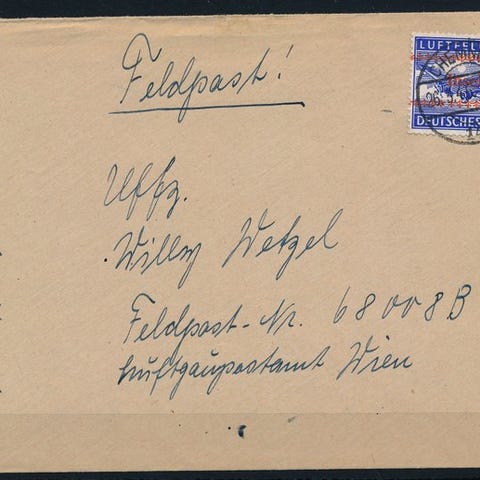 Feldpost!
LUFTFEL
DEUTSCHES
Uffz.
Willy Wetzel
Feldpost-Nr. 68008B
Luftgaupostamt Wien